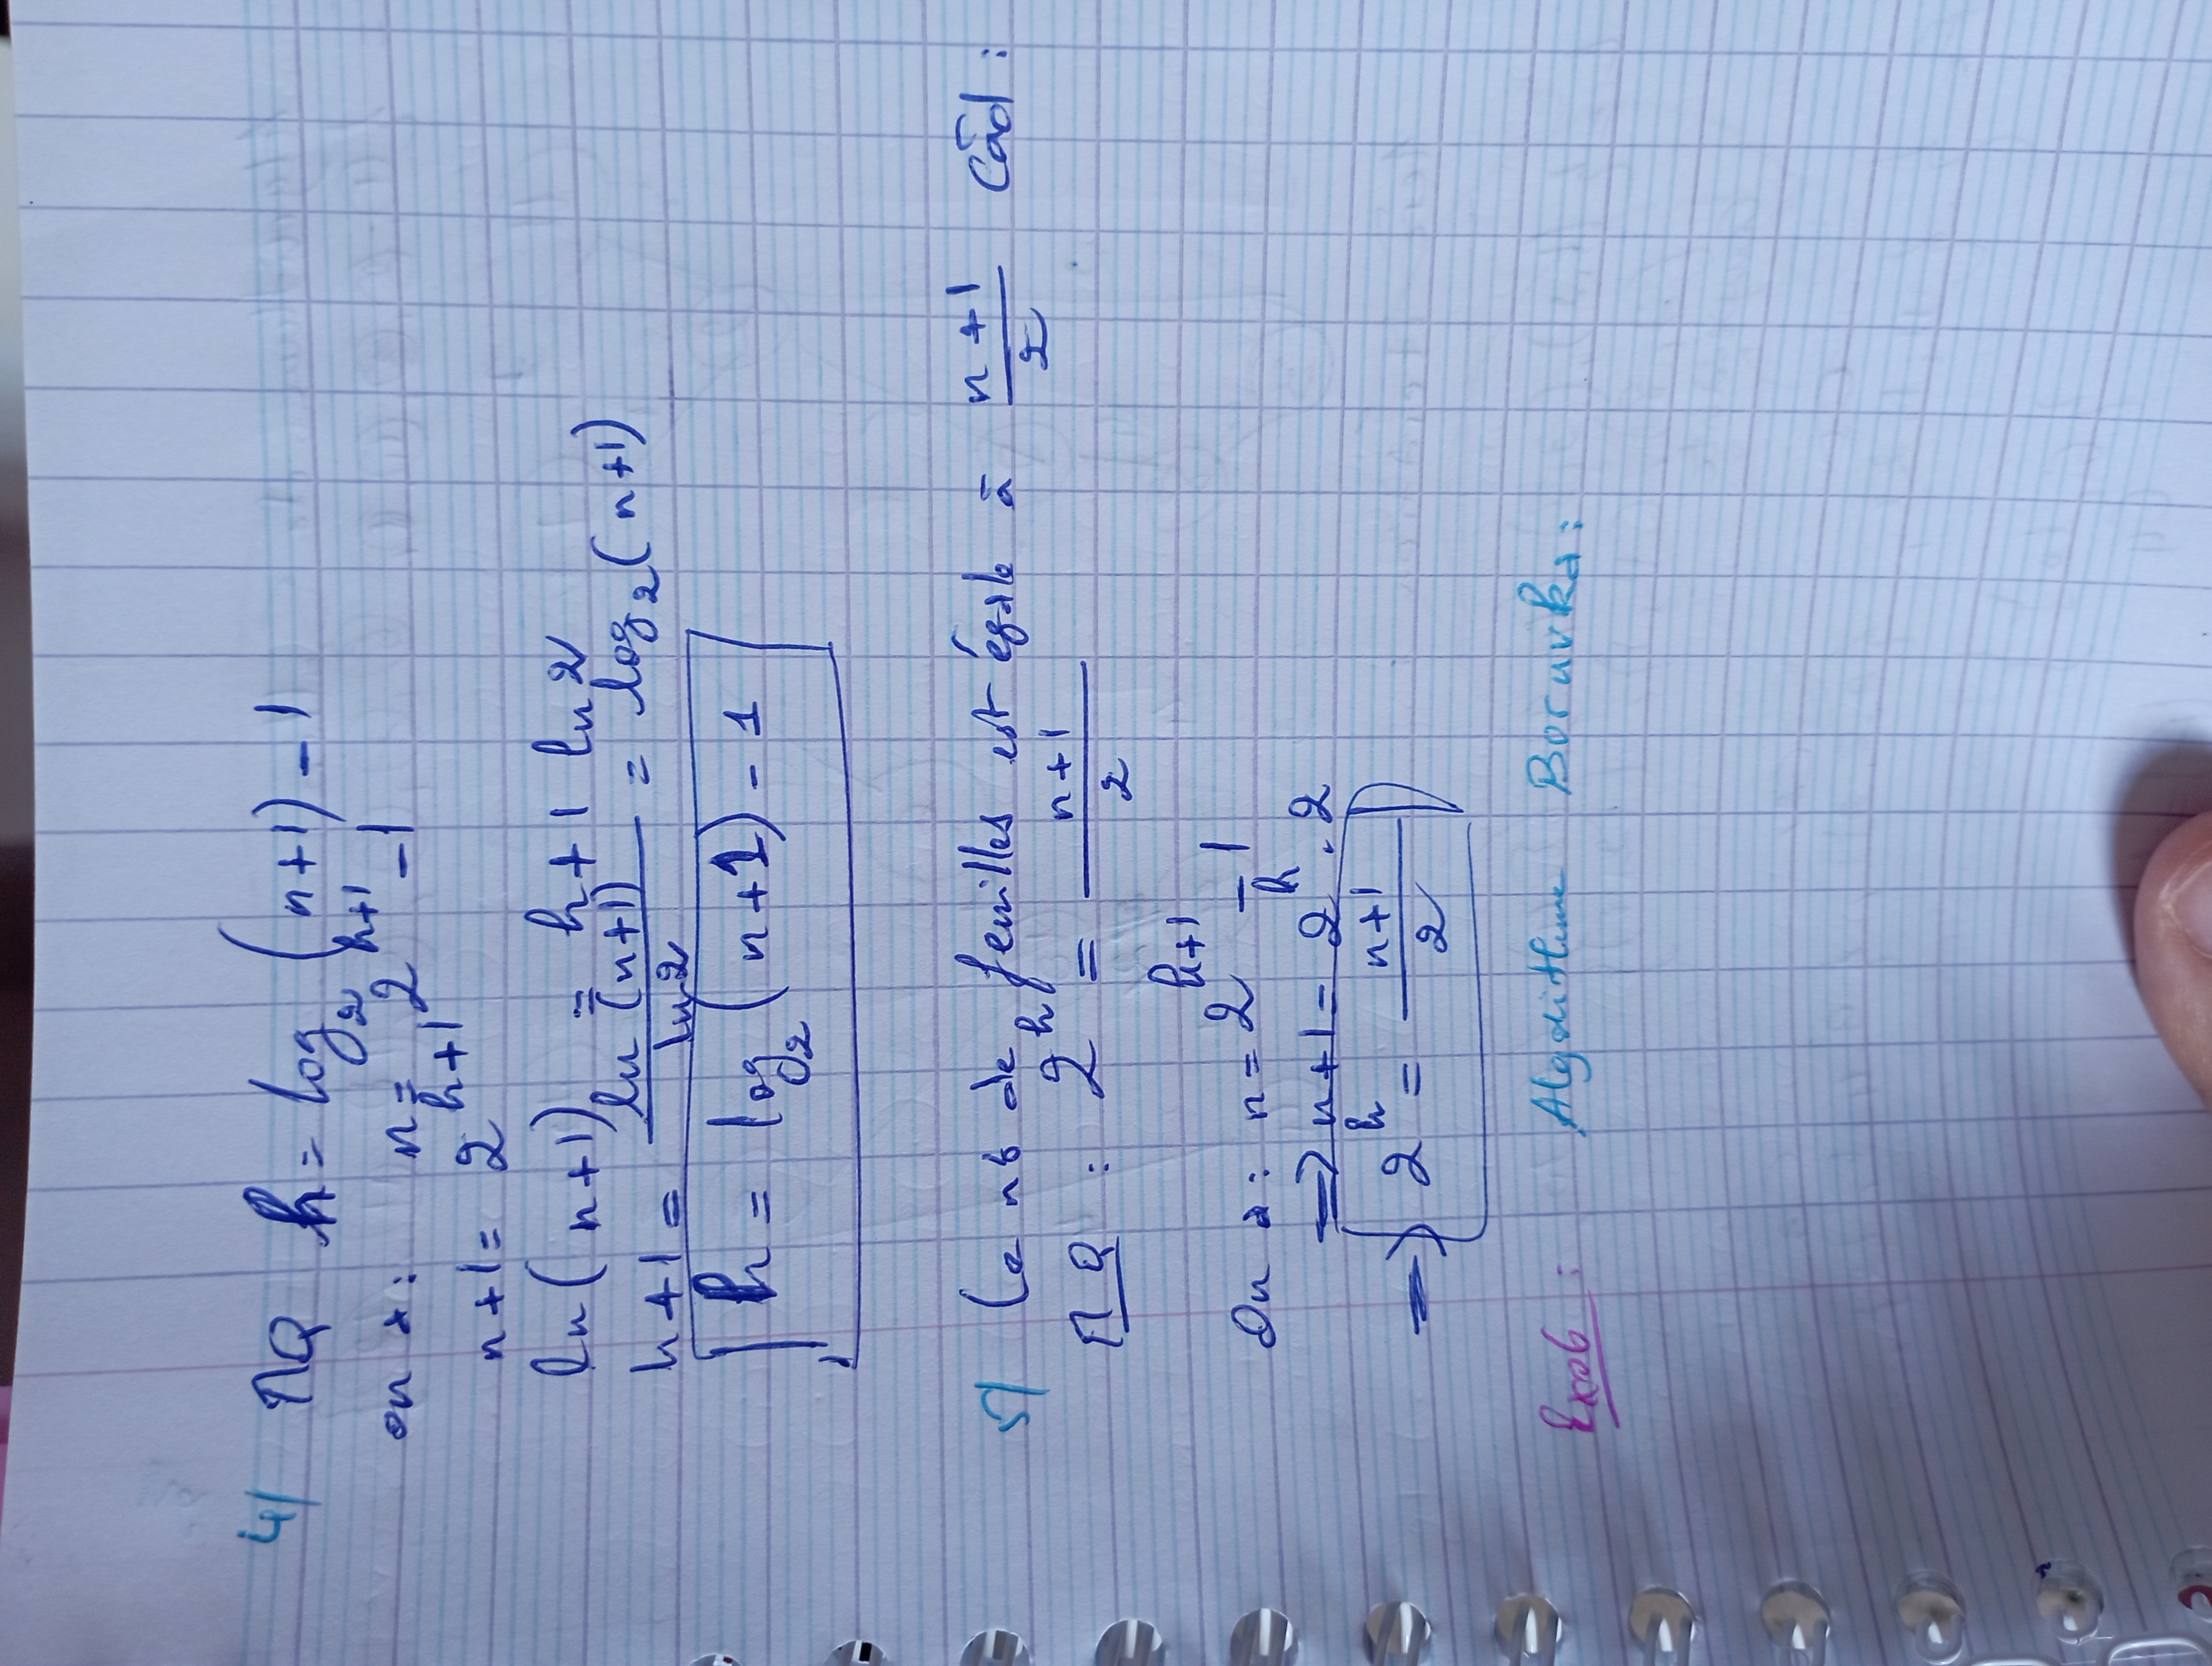 4/ MQ h = log₂ (n+1) - 1
on a : n = 2^(h+1) - 1
n+1 = 2^(h+1)
ln(n+1) = h+1 ln 2
h+1 = ln (n+1) / ln 2 = log₂(n+1)
h = log₂ (n+1) - 1
5/ Le nb de feuilles est égale à (n+1)/2 Càd :
MQ : 2^h = (n+1)/2
On a : n = 2^(h+1) - 1
=> n+1 = 2^h . 2
=> 2^h = (n+1)/2
Exo6 : Algorithme Boruvka :